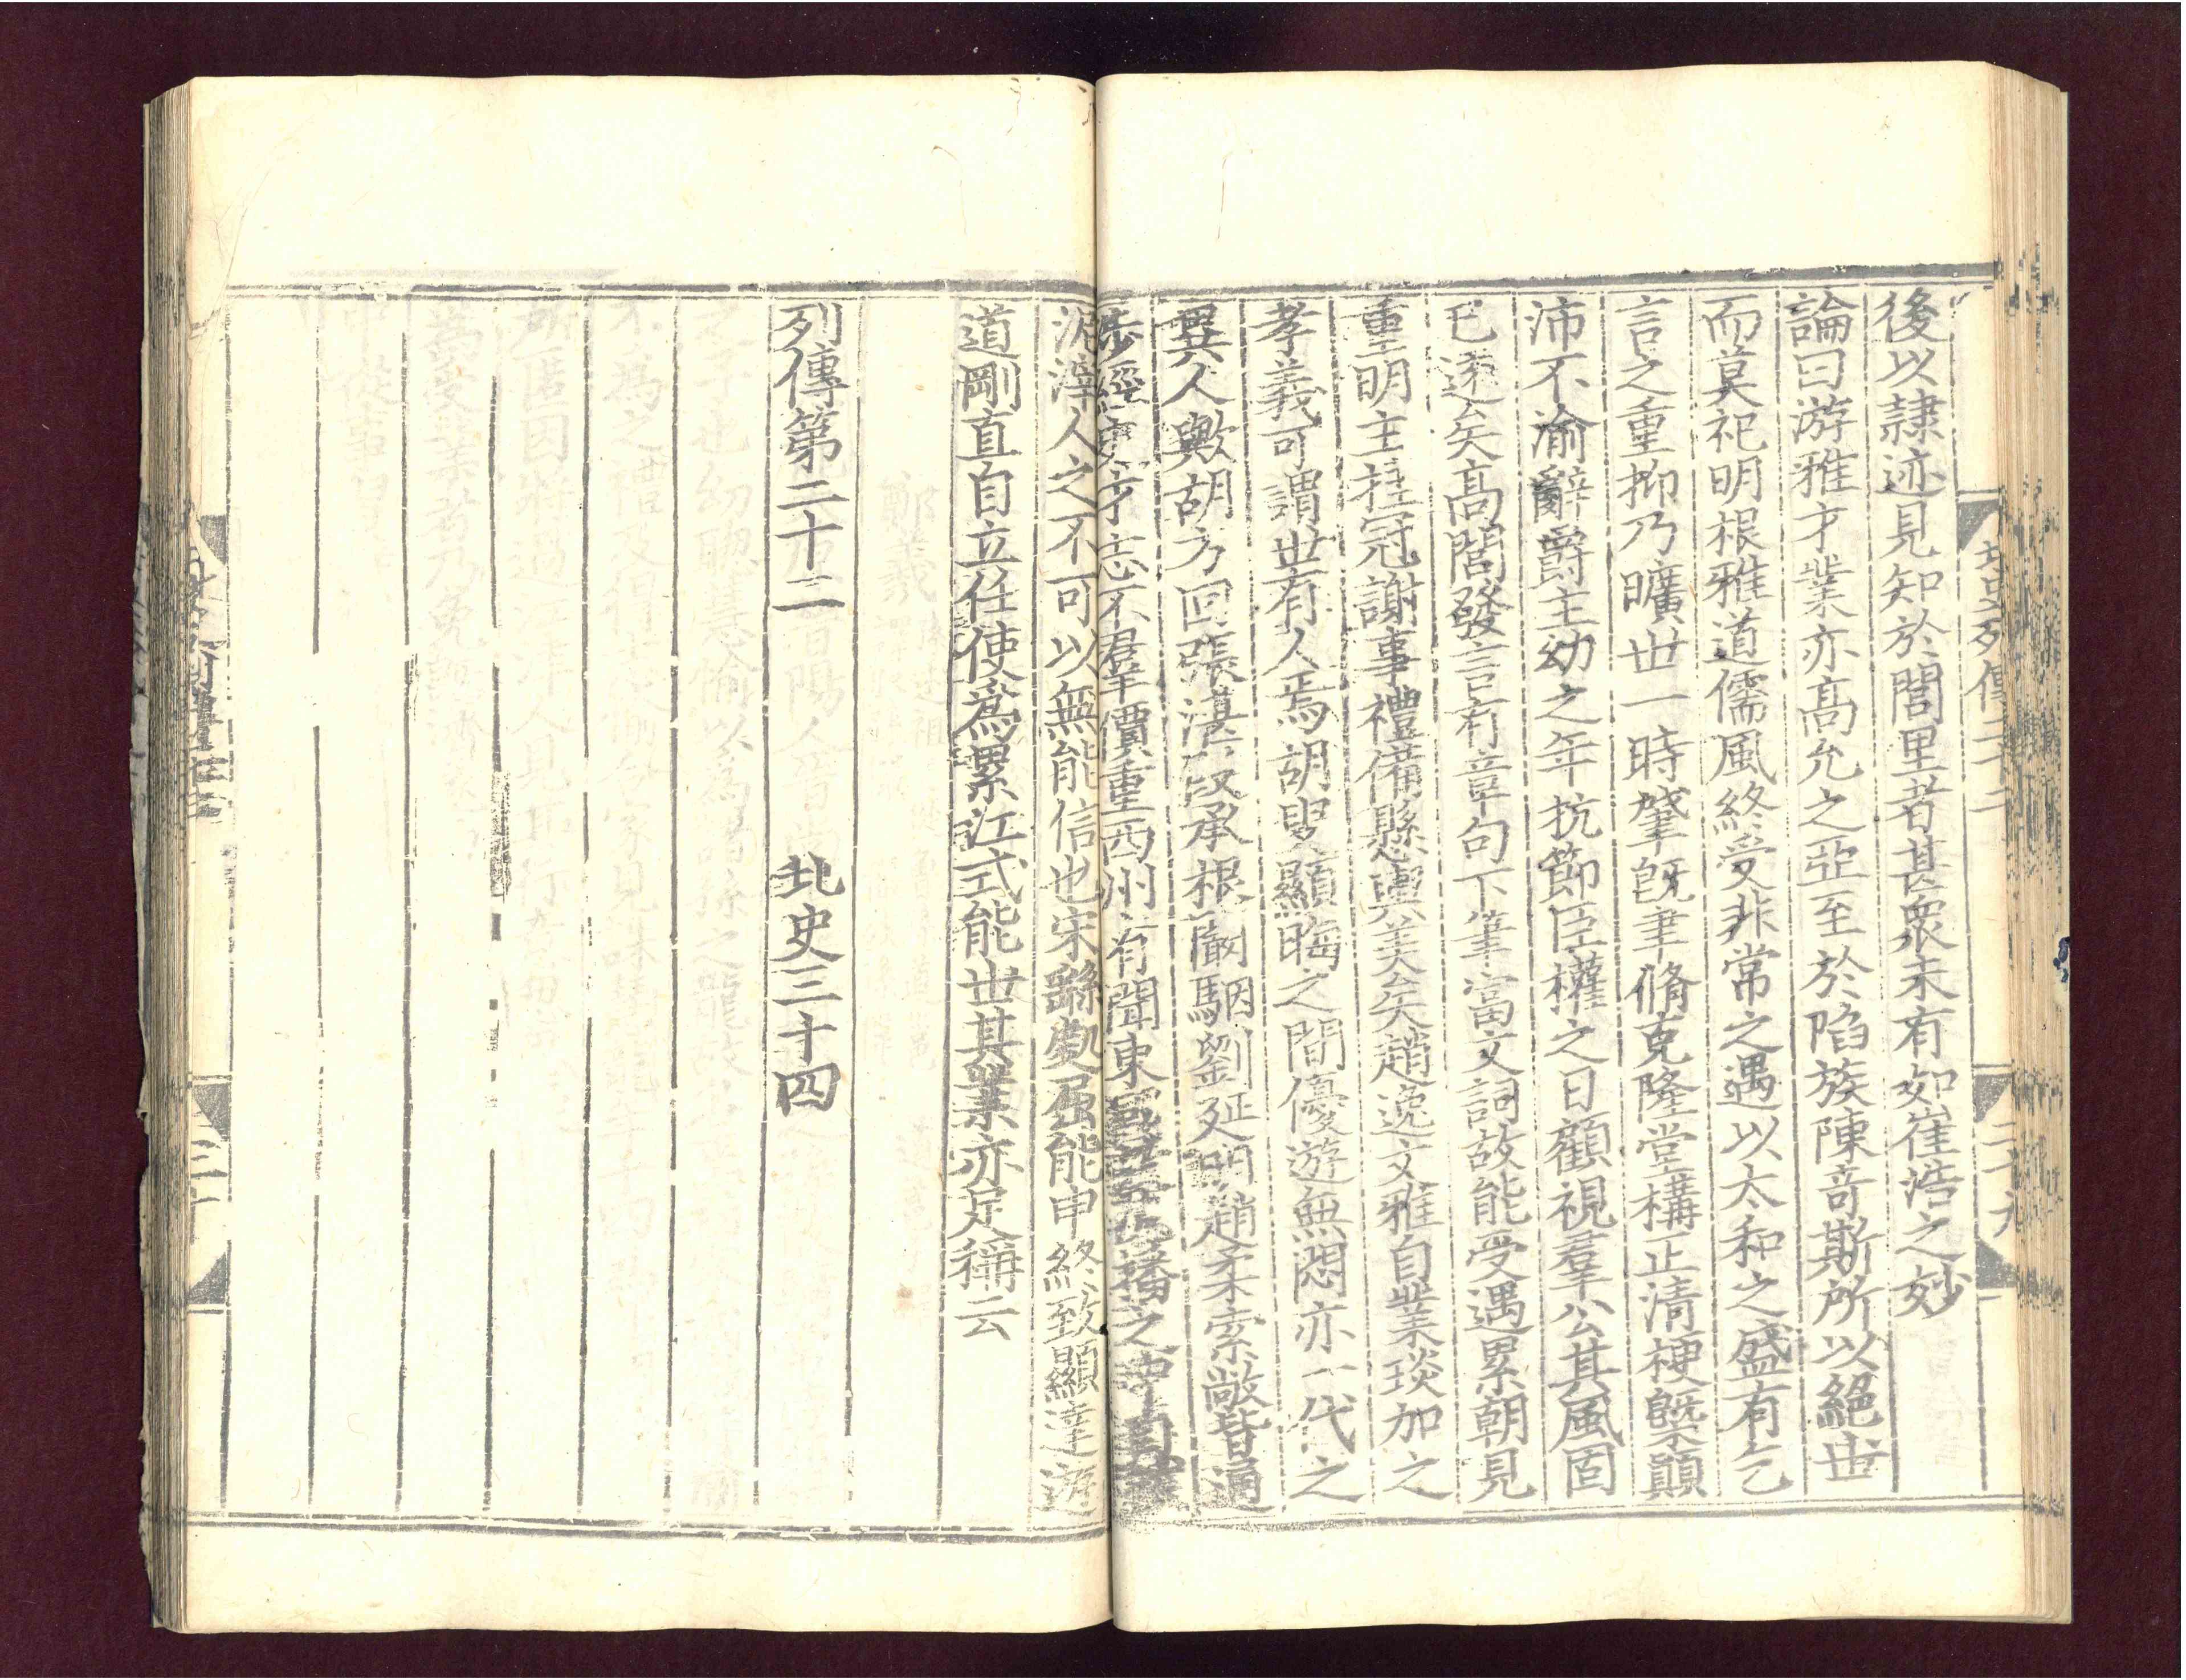 後以隷迹見知於閭里者甚衆未有如崔浩之妙
論曰游雅才業亦高允之亞至於陷族陳竒斯所以絕世
而莫祀明根雅道儒風終受非常之遇以太和之盛有乞
言之重抑乃曠世一時肇旣聿脩克隆堂構正清梗槩顚
沛不渝辭爵主幼之年抗節臣權之日顧視羣公其風固
已逺矣高閭發言有章句下筆富文詞故能受遇累朝見
重明主挂冠謝事禮備懸輿美矣趙逸文雅自業琰加之
孝義可謂世有人焉胡叟顯晦之間優遊無悶亦一代之
異人歟胡方回張湛叚承根闞駰劉延明趙柔索敞皆通
涉經史才志不羣價重西州有聞東
泥滓人之不可以無能信也宋繇處屈能申終致顯達遊
道剛直自立任使爲累江式能世其業亦足稱云
列傳第二十二 北史三十四
二十九